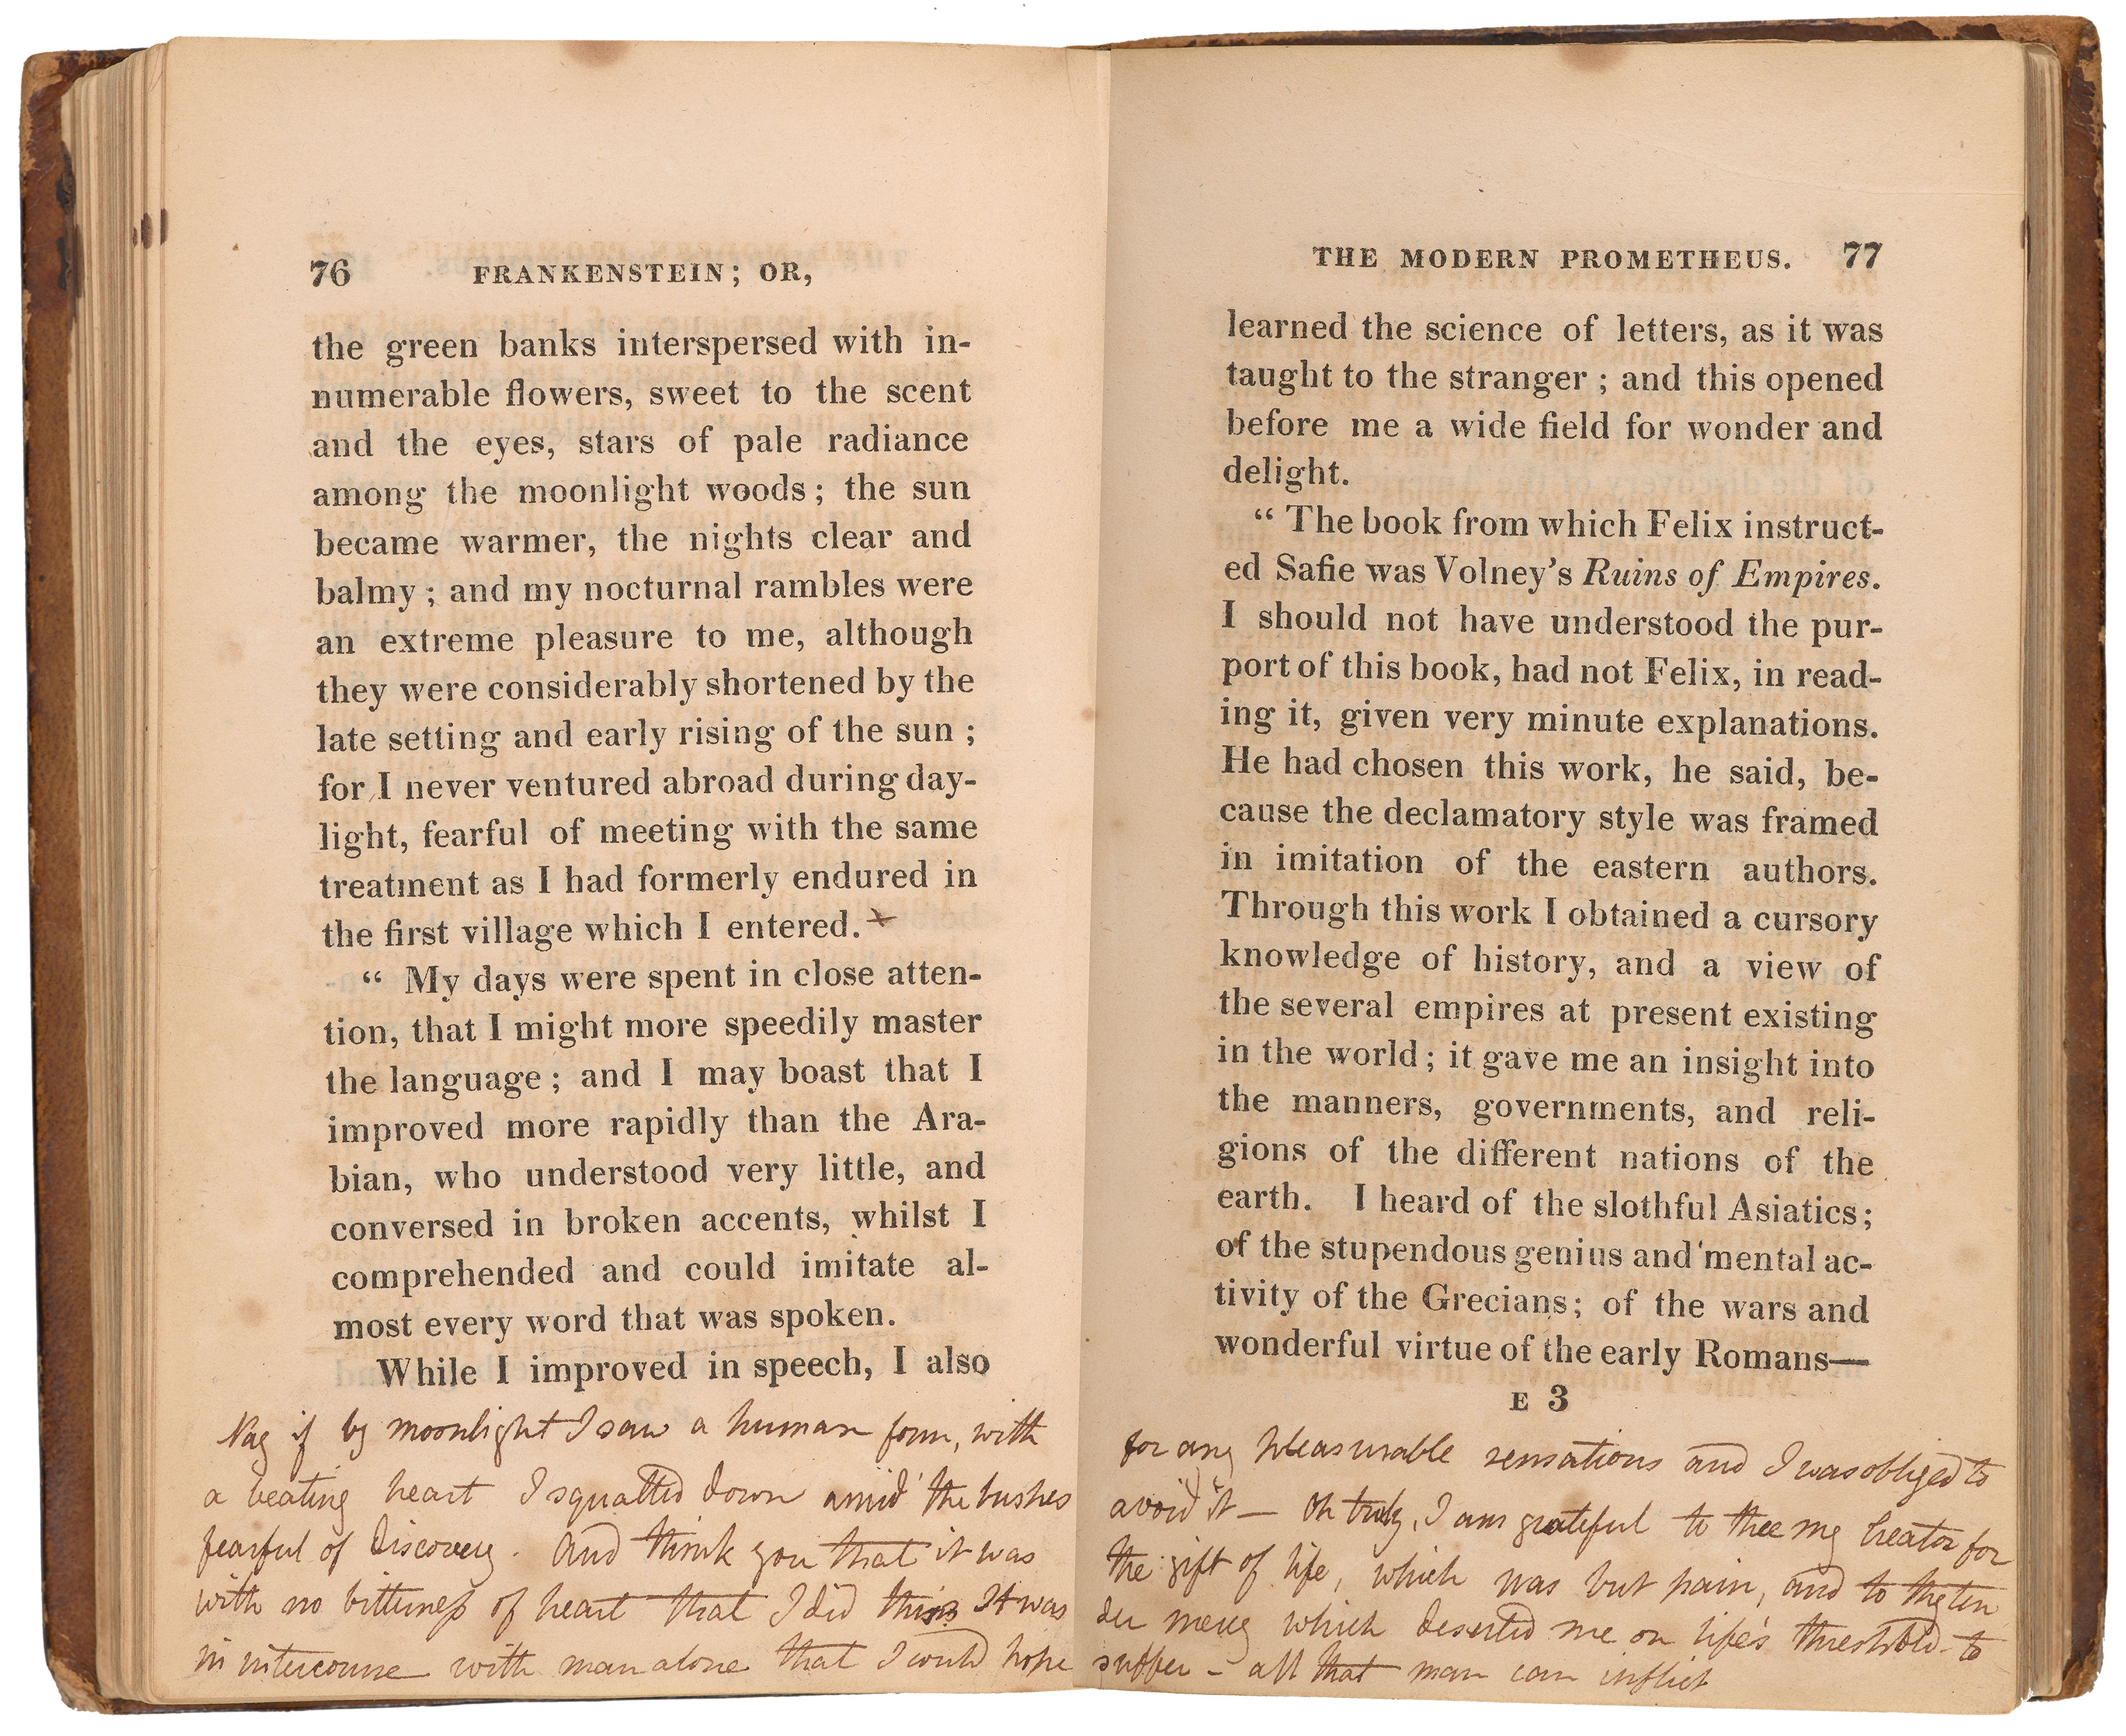 76 FRANKENSTEIN; OR,
the green banks interspersed with in-
numerable flowers, sweet to the scent
and the eyes, stars of pale radiance
among the moonlight woods; the sun
became warmer, the nights clear and
balmy; and my nocturnal rambles were
an extreme pleasure to me, although
they were considerably shortened by the
late setting and early rising of the sun;
for I never ventured abroad during day-
light, fearful of meeting with the same
treatment as I had formerly endured in
the first village which I entered. x
“ My days were spent in close atten-
tion, that I might more speedily master
the language; and I may boast that I
improved more rapidly than the Ara-
bian, who understood very little, and
conversed in broken accents, whilst I
comprehended and could imitate al-
most every word that was spoken.
While I improved in speech, I also
Nay if by moonlight I saw a human form, with
a beating heart I squatted down amid the bushes
fearful of discovery. And think you that it was
with no bitterness of heart that I did this It was
in intercourse with man alone that I could hope
THE MODERN PROMETHEUS. 77
learned the science of letters, as it was
taught to the stranger; and this opened
before me a wide field for wonder and
delight.
“ The book from which Felix instruct-
ed Safie was Volney’s Ruins of Empires.
I should not have understood the pur-
port of this book, had not Felix, in read-
ing it, given very minute explanations.
He had chosen this work, he said, be-
cause the declamatory style was framed
in imitation of the eastern authors.
Through this work I obtained a cursory
knowledge of history, and a view of
the several empires at present existing
in the world; it gave me an insight into
the manners, governments, and reli-
gions of the different nations of the
earth. I heard of the slothful Asiatics;
of the stupendous genius and mental ac-
tivity of the Grecians; of the wars and
wonderful virtue of the early Romans—
E 3
for any pleasurable sensations and I was obliged to
avoid it — Oh truly, I am grateful to thee my Creator for
the gift of life, which was but pain, and to thy ten
der mercy which deserted me on life's threshold to
suffer – all that man can inflict